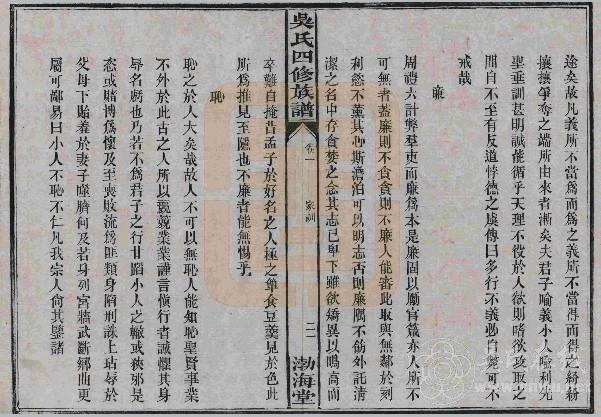 途矣故凡義所不當為而為之義所不當得而得之紛紛
攘攘爭奪之端所由來者漸矣夫君子喻義小人喻利先
聖垂訓甚明誠能循乎天理不役於人欲則嗜欲攻取之
間自不至有友道悖德之虞傳曰多行不義必自斃可不
戒哉
廉
周禮六計弊羣吏而廉為本是廉固以勵官箴亦人所不
可無者蓋廉則不貪貪則不廉人能審此取與無鄰於刻
利慾不薰其心斯澹泊可以明志否則廉隅不飭外託清
潔之名中存貪婪之念其志已卑下雖欲矯異以鳴高而
卒難自掩昔孟子於好名之人極之簞食豆羹見於色此
所為推見至隱也不廉者能無惕乎
吳氏四修族譜
卷一
家訓
二
渤海堂
恥
恥之於人大矣哉故人不可以無恥人能知恥聖賢事業
不外於此古之人所以兢兢業業謹言愼行者誠懼其身
辱名屑也乃若不為君子之行甘蹈小人之轍或狹邪是
恣或賭博為懷及至喪敗流為匪類身陷刑誅上玷辱於
父母下貽羞於妻子噬臍何及若身列宮牆武斷鄉曲更
屬可鄙易曰小人不恥不仁凡我宗人尙其鑒諸